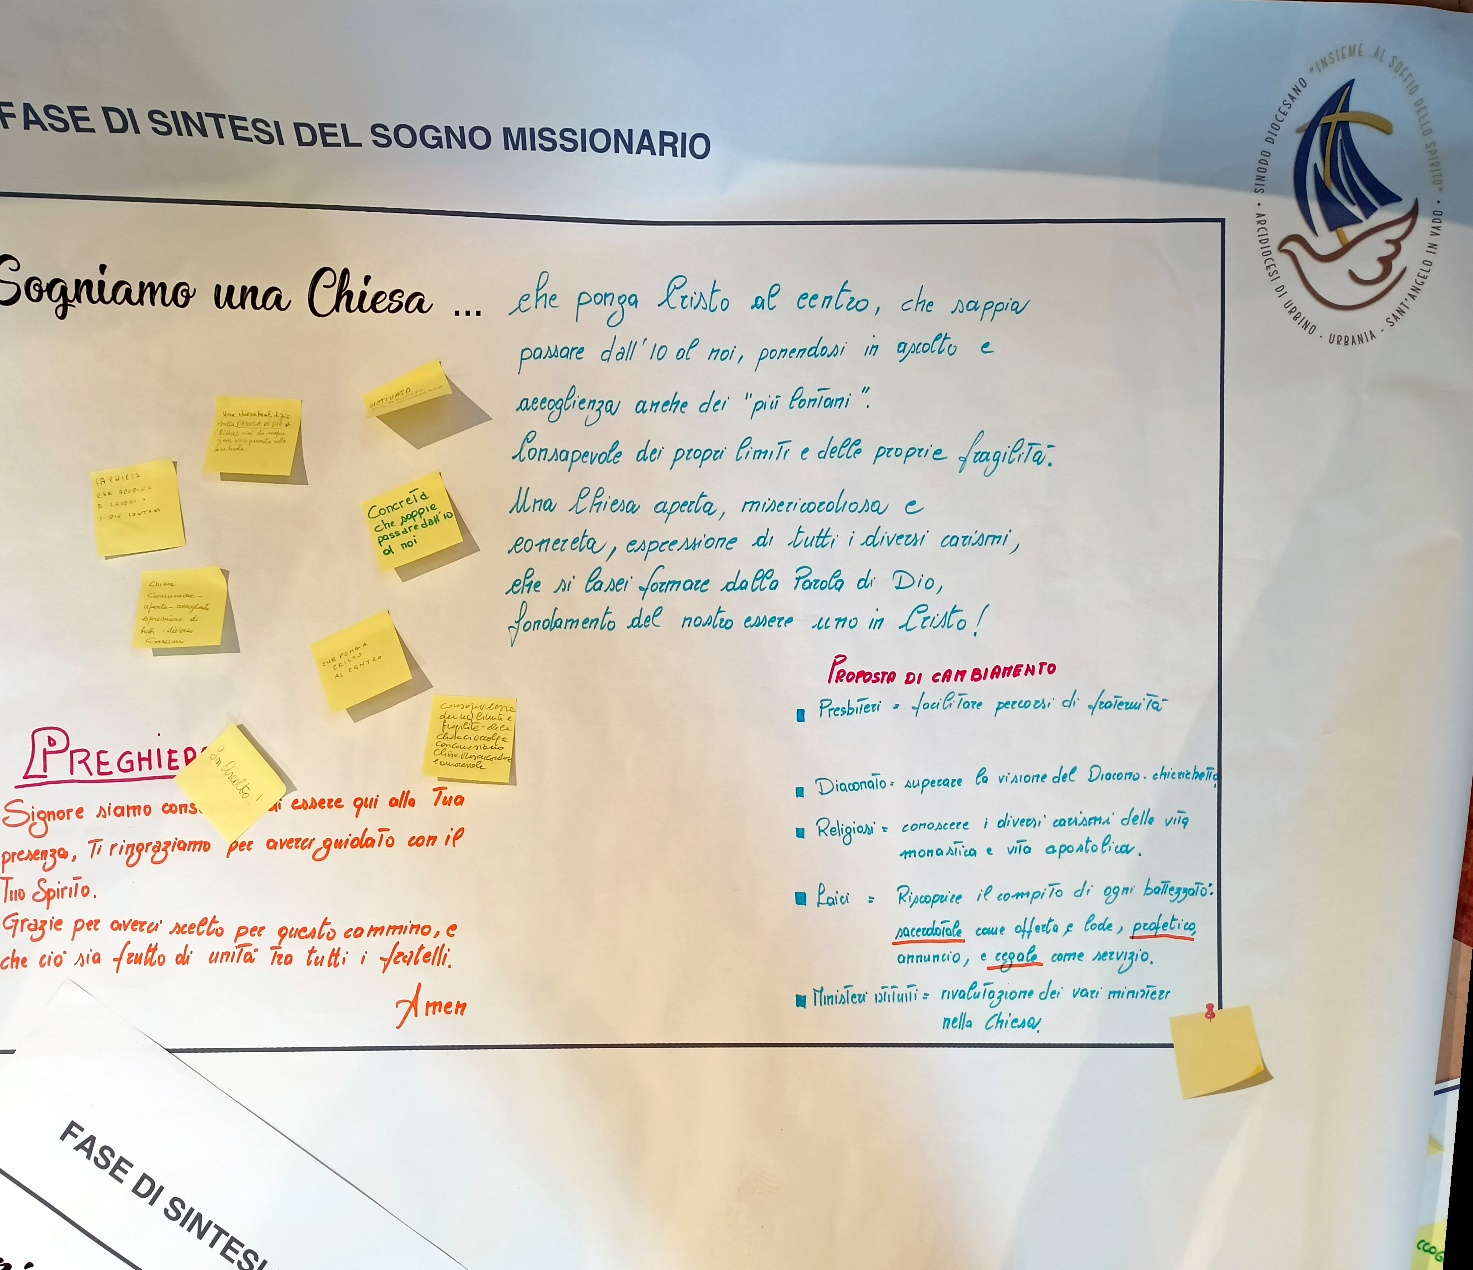 FASE DI SINTESI DEL SOGNO MISSIONARIO
SINODO DIOCESANO "INSIEME AL SOFFIO DELLO SPIRITO"
ARCIDIOCESI DI URBINO - URBANIA - SANT'ANGELO IN VADO
Sogniamo una Chiesa ...
che ponga Cristo al centro, che sappia
passare dall'IO al noi, ponendosi in ascolto e
accoglienza anche dei "più lontani".
Consapevole dei propri limiti e delle proprie fragilità.
Una Chiesa aperta, misericordiosa e
concreta, espressione di tutti i diversi carismi,
che si lasci formare dalla Parola di Dio,
fondamento del nostro essere uno in Cristo!
MOTIVATA
Una chiesa
PAROLA DI DIO
LA CHIESA
CHE
I PIÙ LONTANI
Concreta
che sappia
passare dall'io
al noi
Chiesa
Comunione -
aperta - accogliente
espressione di
tutti i diversi
Carismi
CHE PONGA
CRISTO
AL CENTRO
consapevole
dei suoi limiti e
fragilità - della
In Ascolto!
PREGHIER
Signore siamo cons di essere qui alla Tua
presenza, Ti ringraziamo per averci guidato con il
Tuo Spirito.
Grazie per averci scelto per questo cammino, e
che ciò sia frutto di unità tra tutti i fratelli.
Amen
PROPOSTA DI CAMBIAMENTO
Presbiteri = facilitare percorsi di fraternità
Diaconato = superare la visione del Diacono-chierichetto
Religiosi = conoscere i diversi carismi della vita
monastica e vita apostolica.
Laici = Riscoprire il compito di ogni battezzato:
sacerdotale come offerta e lode, profetico,
annuncio, e regale come servizio.
Ministeri istituiti = rivalutazione dei vari ministeri
nella Chiesa.
FASE DI SINTESI
CCOG